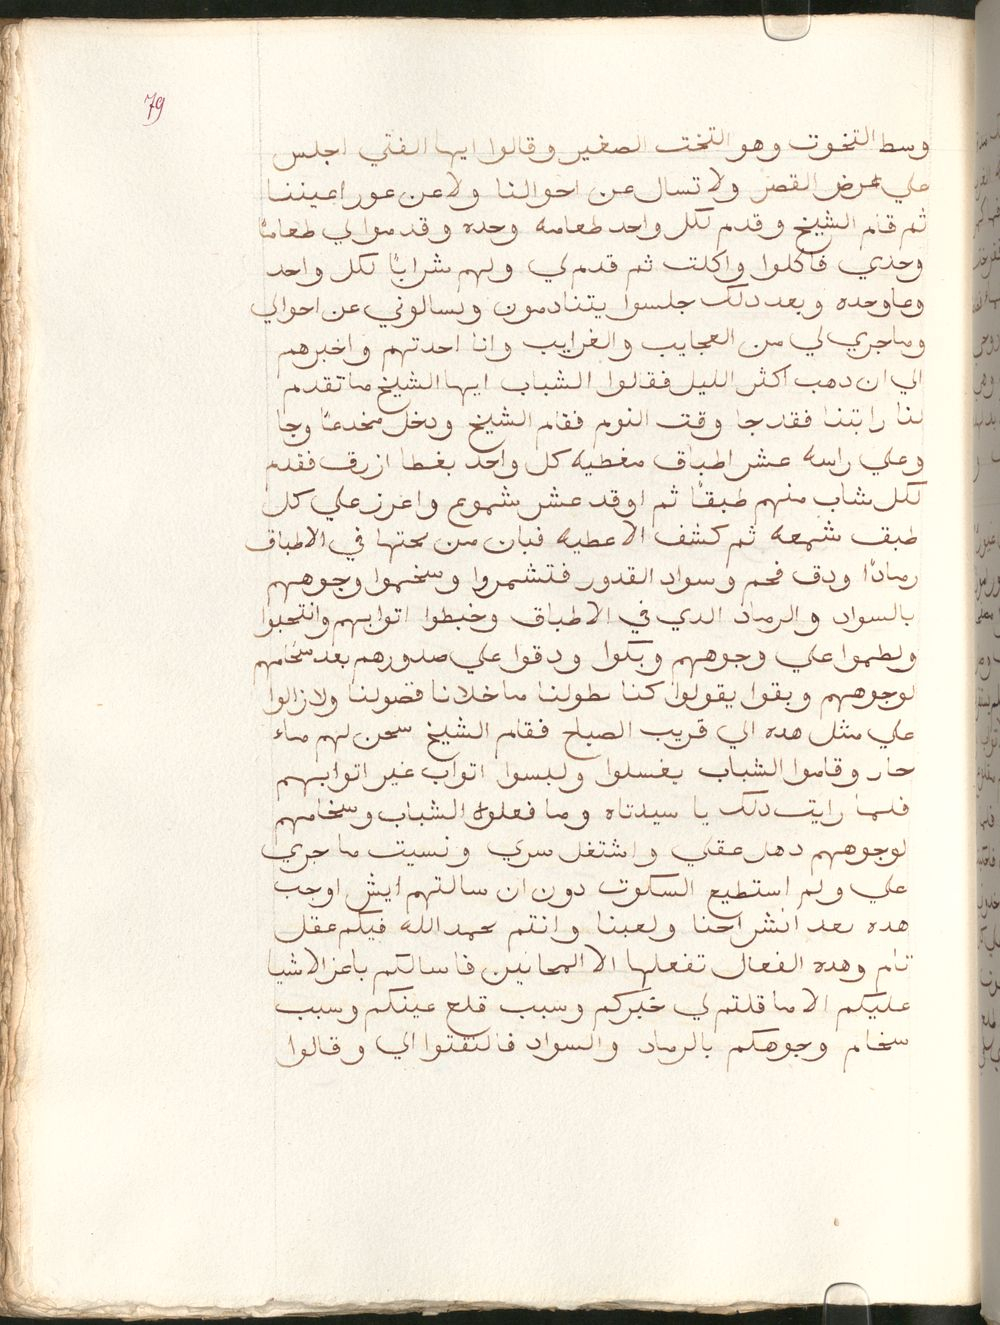 79
وسط التخوت وهو التخت الصغير وقالوا ايها الفتي اجلس
علي عرض القصر ولا تسال عن احوالنا ولا عن عور اعيننا
ثم قام الشيخ وقدم لكل واحد طعامه وحده وقدموا لي طعامًا
وحدي فاكلوا واكلت ثم قدم لي ولهم شرابًا لكل واحد
وعا وحده وبعد دلك جلسوا يتنادمون ويسالوني عن احوالي
وما جري لي من العجايب والغرايب وانا احدتهم واخبرهم
الي ان دهب اكثر الليل فقالوا الشباب ايها الشيخ ما تقدم
لنا راتبنا فقد جا وقت النوم فقام الشيخ ودخل مخدعًا وجا
وعلي راسه عشر اطباق مغطيه كل واحد بغطا ازرق فقدم
لكل شاب منهم طبقًا ثم اوقد عشر شموع واغرز علي كل
طبق شمعه ثم كشف الاغطيه فبان من تحتها في الاطباق
رمادًا ودق فحم وسواد القدور فتشمروا وسخموا وجوههم
بالسواد والرماد الدي في الاطباق وخبطوا اتوابهم وانتحبوا
ولطموا علي وجوههم وبكوا ودقوا علي صدورهم بعد سخامهم
لوجوههم وبقوا يقولوا كنا بطولنا ما خلانا فضولنا ولا زالوا
علي مثل هده الي قريب الصباح فقام الشيخ سحن لهم ماء
حار وقاموا الشباب يغسلوا ولبسوا اتواب غير اتوابهم
فلما رايت دلك يا سيدتاه وما فعلوه الشباب وسخامهم
لوجوههم دهل عقلي واشتغل سري ونسيت ما جري
علي ولم استطيع السكوت دون ان سالتهم ايش اوجب
هده بعد انشراحنا ولعبنا وانتم بحمد الله فيكم عقل
تام وهده الفعال تفعلها الا المجانين فاسالكم باعز الاشيا
عليكم الا ما قلتم لي خبركم وسبب قلع عينكم وسبب
سخام وجوهكم بالرماد والسواد فالتفتوا الي وقالوا